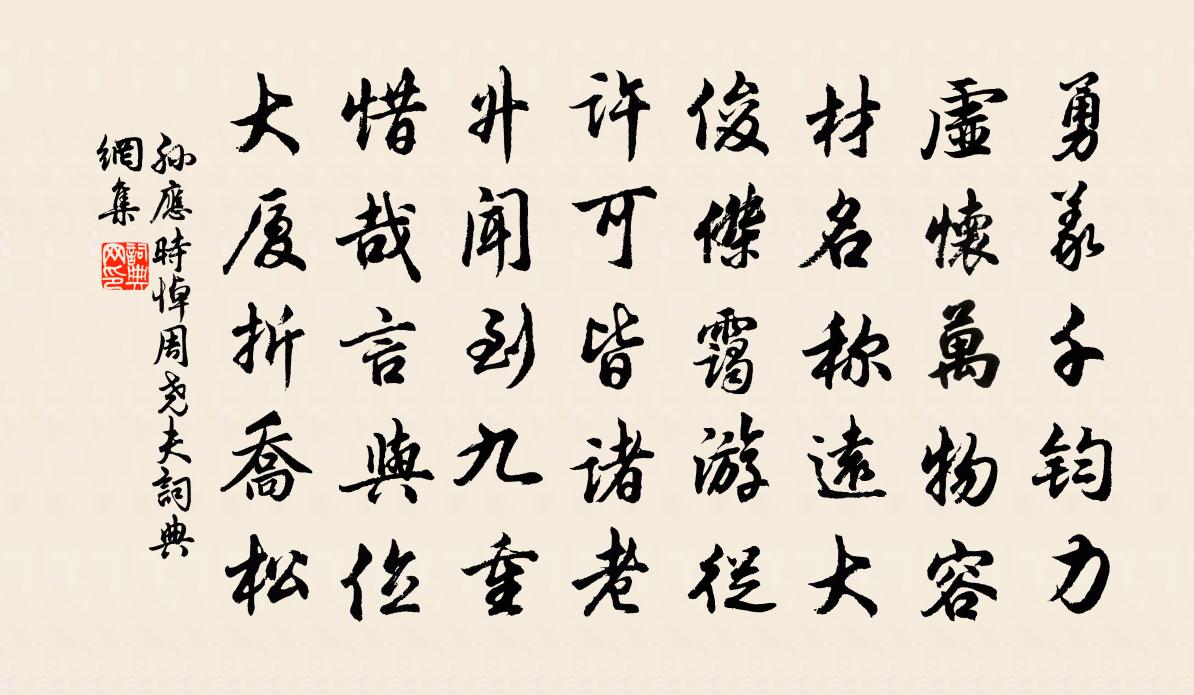 勇義千鈞力
虛懷萬物容
材名称遠大
俊傑靄游從
許可皆諸老
升聞到九重
惜哉言與位
大厦折喬松
孫應時悼周尧夫詞典
網集
詞典
网印